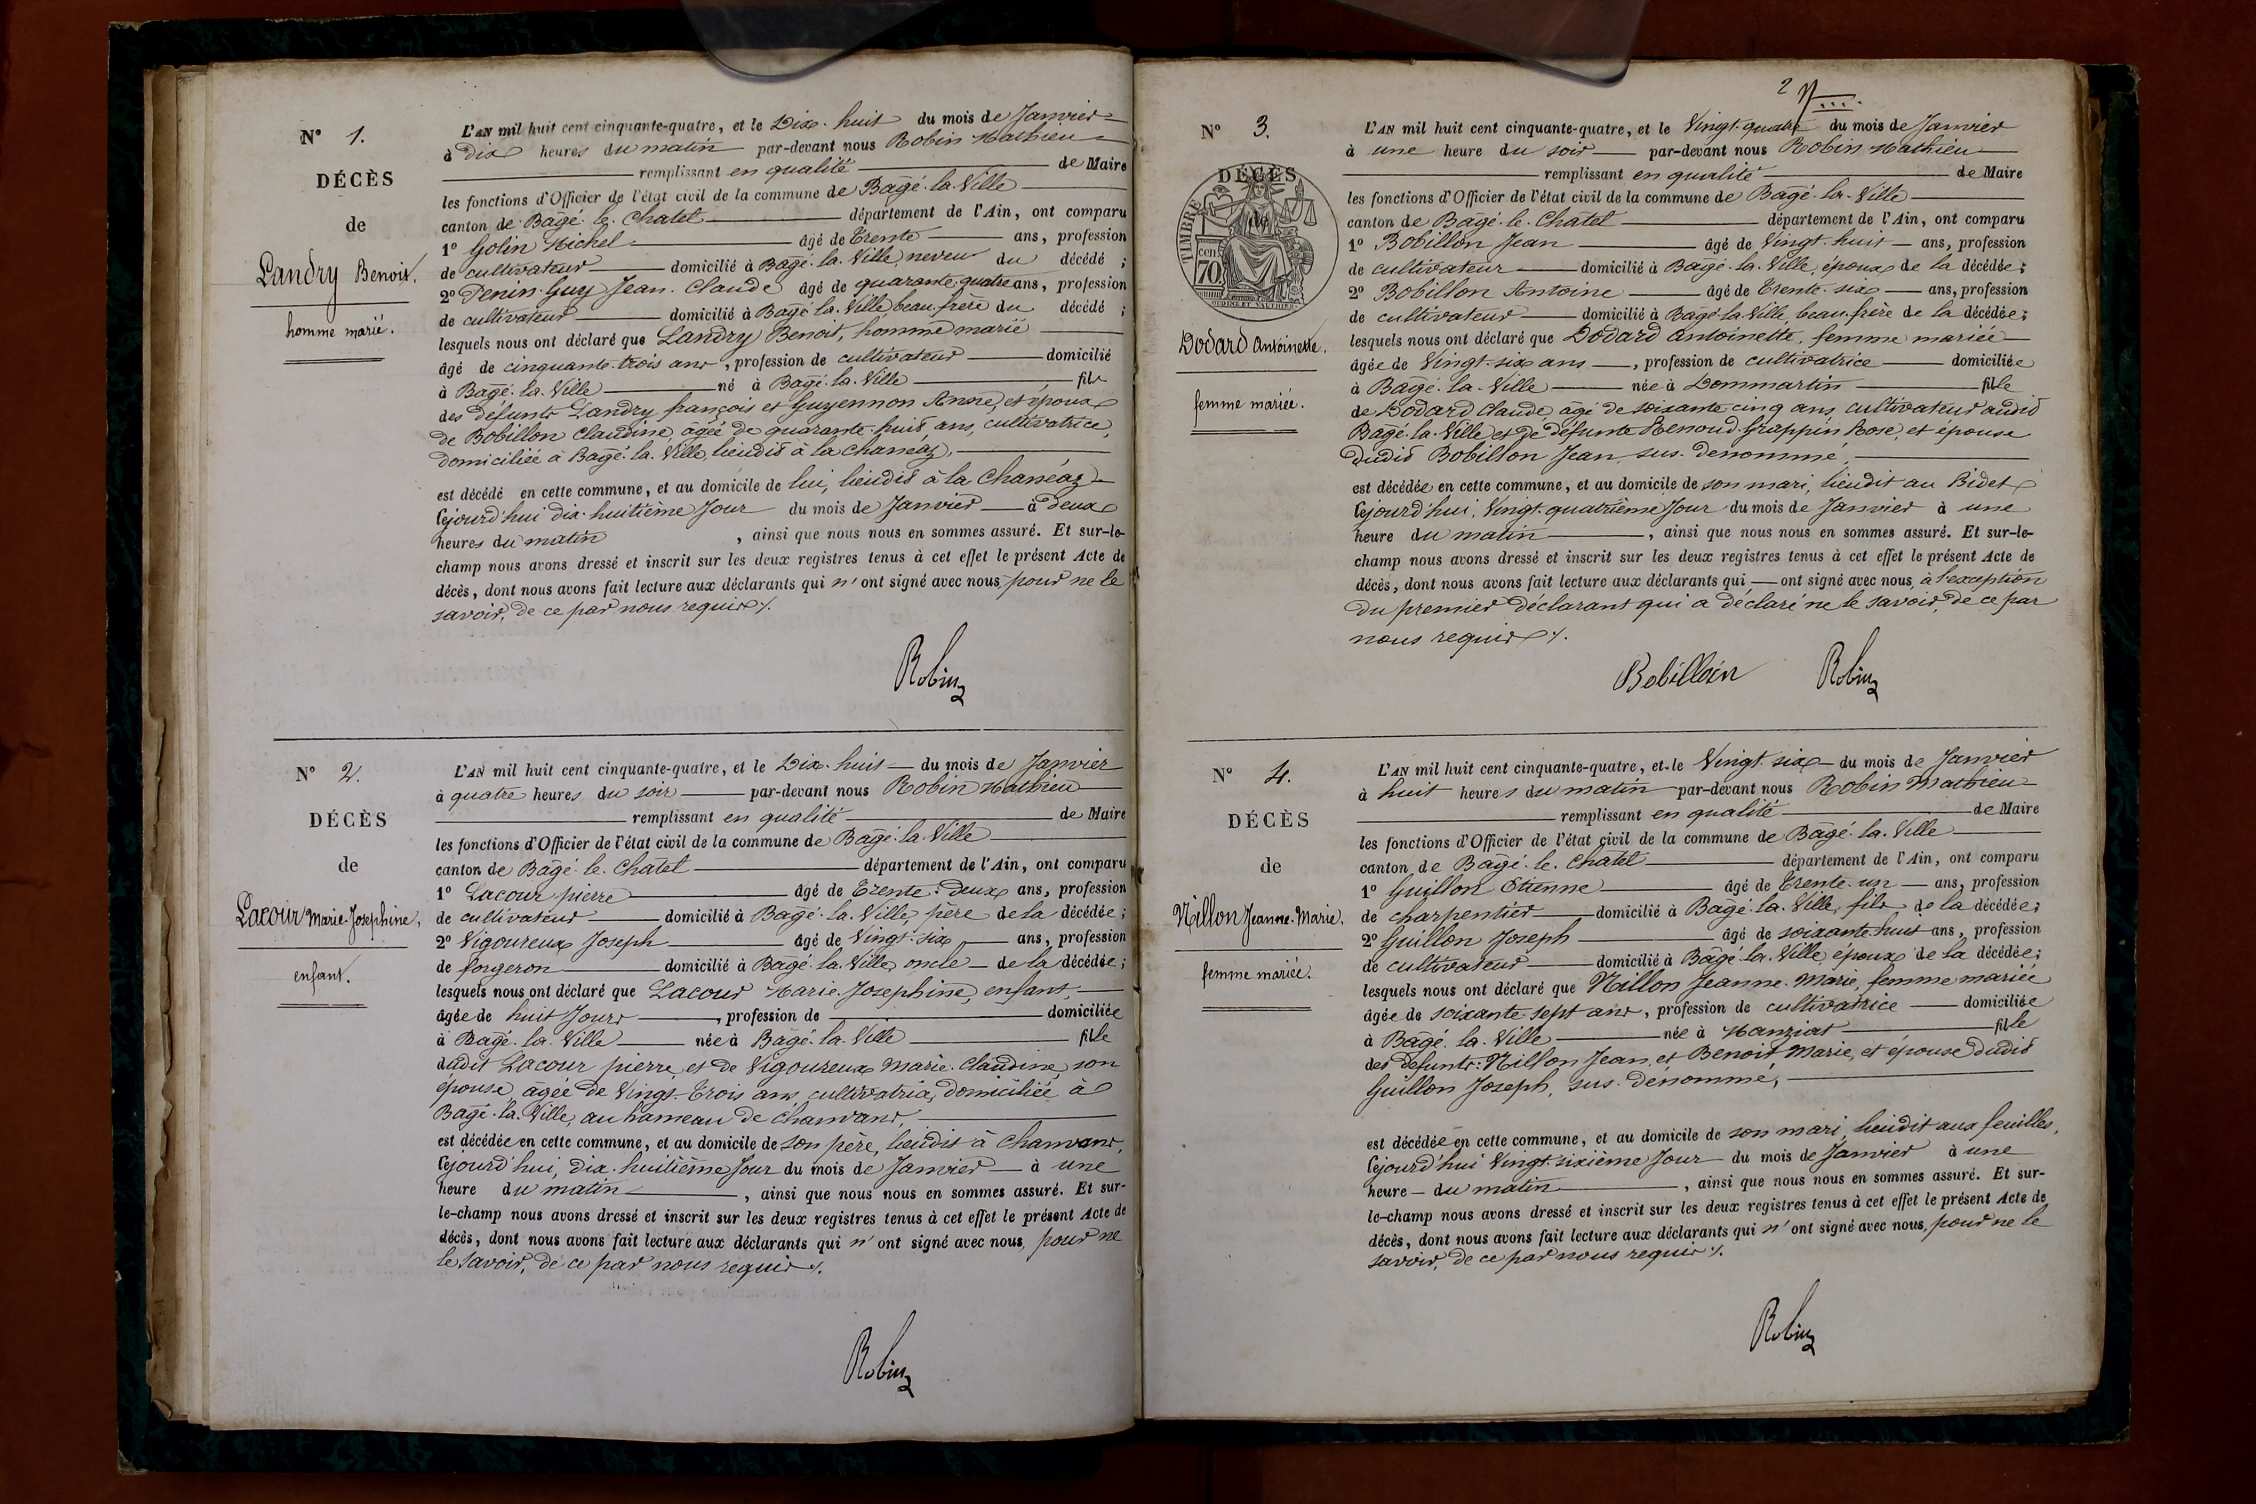 N° 1.
DÉCÈS
de
Landry Benoit.
homme marié.
L'AN mil huit cent cinquante-quatre, et le Dix-huit du mois de Janvier
à dix heures du matin par-devant nous Robin Mathieu
remplissant en qualité de Maire
les fonctions d'Officier de l'état civil de la commune de Bagé-la-Ville
canton de Bagé-le-Chatel département de l'Ain, ont comparu
1° Golin Michel âgé de Trente ans, profession
de cultivateur domicilié à Bagé-la-Ville, neveu du décédé ;
2° Penin-Guy Jean-Claude âgé de quarante quatre ans, profession
de cultivateur domicilié à Bagé-la-Ville beau-frère du décédé ;
lesquels nous ont déclaré que Landry Benoit, homme marié
âgé de cinquante-trois ans, profession de cultivateur domicilié
à Bagé-la-Ville né à Bagé-la-Ville fils
des défunts Landry françois et Guyennon Anne, et époux
de Bobillon Claudine, âgée de quarante-huit ans, cultivatrice,
domiciliée à Bagé-la-Ville, lieudit à la Chanéaz,
est décédé en cette commune, et au domicile de lui, lieudit à la Chanéaz
cejourd'hui dix-huitième Jour du mois de Janvier à deux
heures du matin, ainsi que nous nous en sommes assuré. Et sur-le-
champ nous avons dressé et inscrit sur les deux registres tenus à cet effet le présent Acte de
décès, dont nous avons fait lecture aux déclarants qui n'ont signé avec nous, pour ne le
savoir, de ce par nous requis ./.
Robin
N° 2.
DÉCÈS
de
Lacour Marie-Josephine,
enfant.
L'AN mil huit cent cinquante-quatre, et le Dix-huit du mois de Janvier
à quatre heures du soir par-devant nous Robin Mathieu
remplissant en qualité de Maire
les fonctions d'Officier de l'état civil de la commune de Bagé-la-Ville
canton de Bagé-le-Chatel département de l'Ain, ont comparu
1° Lacour pierre âgé de Trente-deux ans, profession
de cultivateur domicilié à Bagé-la-Ville, père de la décédée ;
2° Vigoureux Joseph âgé de Vingt-six ans, profession
de forgeron domicilié à Bagé-la-Ville, oncle de la décédée ;
lesquels nous ont déclaré que Lacour Marie-Josephine, enfant,
âgée de huit Jours, profession de domiciliée
à Bagé-la-Ville née à Bagé-la-Ville fille
dudit Lacour pierre, et de Vigoureux Marie-Claudine, son
épouse, âgée de Vingt-Trois ans, cultivatrice, domiciliée à
Bagé-la-Ville, au hameau de Chanvans,
est décédée en cette commune, et au domicile de son père, lieudit à Chanvans,
cejourd'hui, dix-huitième Jour du mois de Janvier à une
heure du matin, ainsi que nous nous en sommes assuré. Et sur-
le-champ nous avons dressé et inscrit sur les deux registres tenus à cet effet le présent Acte de
décès, dont nous avons fait lecture aux déclarants qui n'ont signé avec nous, pour ne
le savoir, de ce par nous requis ./.
Robin
2
N° 3.
DÉCÈS
de
TIMBRE
70 cen
Dodard Antoinette.
femme mariée.
L'AN mil huit cent cinquante-quatre, et le Vingt-quatre du mois de Janvier
à une heure du soir par-devant nous Robin Mathieu
remplissant en qualité de Maire
les fonctions d'Officier de l'état civil de la commune de Bagé-la-Ville
canton de Bagé-le-Chatel département de l'Ain, ont comparu
1° Bobillon Jean âgé de Vingt-huit ans, profession
de cultivateur domicilié à Bagé-la-Ville, époux de la décédée ;
2° Bobillon Antoine âgé de Trente-six ans, profession
de cultivateur domicilié à Bagé-la-Ville, beau-frère de la décédée ;
lesquels nous ont déclaré que Dodard Antoinette, femme mariée
âgée de Vingt-six ans, profession de cultivatrice domiciliée
à Bagé-la-Ville née à Dommartin fille
de Dodard Claude, âgé de soixante cinq ans, cultivateur audit
Bagé-la-Ville, et de défunte Renoud-Grappin Rose, et épouse
dudit Bobillon Jean, sus-dénommé,
est décédée en cette commune, et au domicile de son mari, lieudit au Bidet
cejourd'hui, Vingt-quatrième Jour du mois de Janvier à une
heure du matin, ainsi que nous nous en sommes assuré. Et sur-le-
champ nous avons dressé et inscrit sur les deux registres tenus à cet effet le présent Acte de
décès, dont nous avons fait lecture aux déclarants qui ont signé avec nous, à l'exception
du premier déclarant qui a déclaré ne le savoir, de ce par
nous requis ./.
Bobilloin Robin
N° 4.
DÉCÈS
de
Nillon Jeanne-Marie.
femme mariée.
L'AN mil huit cent cinquante-quatre, et le Vingt-six du mois de Janvier
à huit heures du matin par-devant nous Robin Mathieu
remplissant en qualité de Maire
les fonctions d'Officier de l'état civil de la commune de Bagé-la-Ville
canton de Bagé-le-Chatel département de l'Ain, ont comparu
1° Guillon Etienne âgé de Trente-un ans, profession
de charpentier domicilié à Bagé-la-Ville, fils de la décédée ;
2° Guillon Joseph âgé de soixante-huit ans, profession
de cultivateur domicilié à Bagé-la-Ville, époux de la décédée ;
lesquels nous ont déclaré que Nillon Jeanne-Marie, femme mariée
âgée de soixante-sept ans, profession de cultivatrice domiciliée
à Bagé-la-Ville née à Manziat fille
des défunts : Nillon Jean, et Benoit Marie, et épouse dudit
Guillon Joseph, sus-dénommé,
est décédée en cette commune, et au domicile de son mari, lieudit aux feuilles,
cejourd'hui Vingt-sixième Jour du mois de Janvier à une
heure du matin, ainsi que nous nous en sommes assuré. Et sur-
le-champ nous avons dressé et inscrit sur les deux registres tenus à cet effet le présent Acte de
décès, dont nous avons fait lecture aux déclarants qui n'ont signé avec nous, pour ne le
savoir, de ce par nous requis ./.
Robin